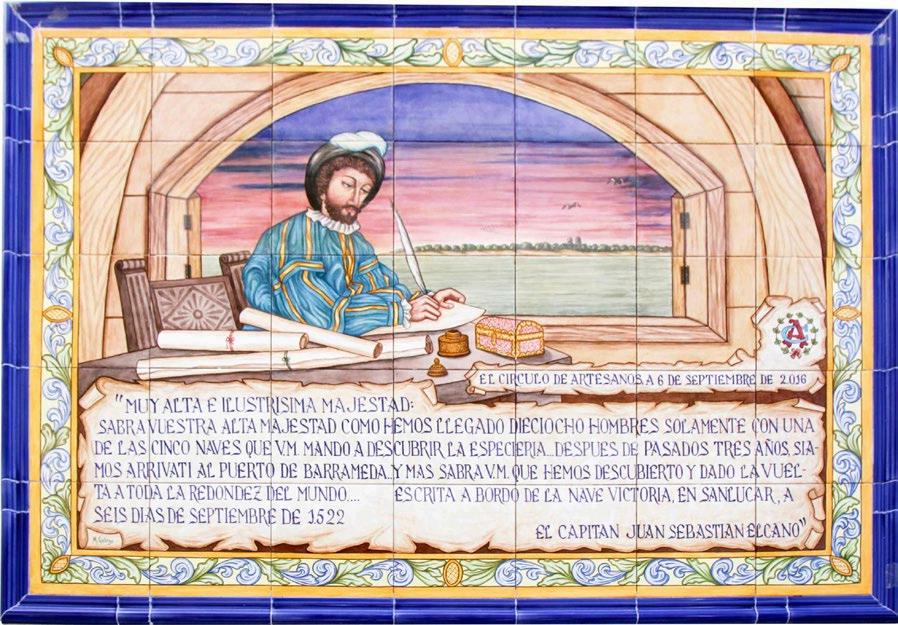 EL CIRCULO DE ARTESANOS, A 6 DE SEPTIEMBRE DE 2.016
A
"MUY ALTA E ILUSTRISIMA MAJESTAD:
SABRA VUESTRA ALTA MAJESTAD COMO HEMOS LLEGADO DIECIOCHO HOMBRES SOLAMENTE CON UNA
DE LAS CINCO NAVES QUE V.M. MANDO A DESCUBRIR LA ESPECIERIA...DESPUES DE PASADOS TRES AÑOS, SIA-
MOS ARRIVATI AL PUERTO DE BARRAMEDA...Y MAS SABRA V.M. QUE HEMOS DESCUBIERTO Y DADO LA VUEL-
TA A TODA LA REDONDEZ DEL MUNDO.... ESCRITA A BORDO DE LA NAVE VICTORIA, EN SANLUCAR, A
SEIS DIAS DE SEPTIEMBRE DE 1522
EL CAPITAN JUAN SEBASTIAN ELCANO"